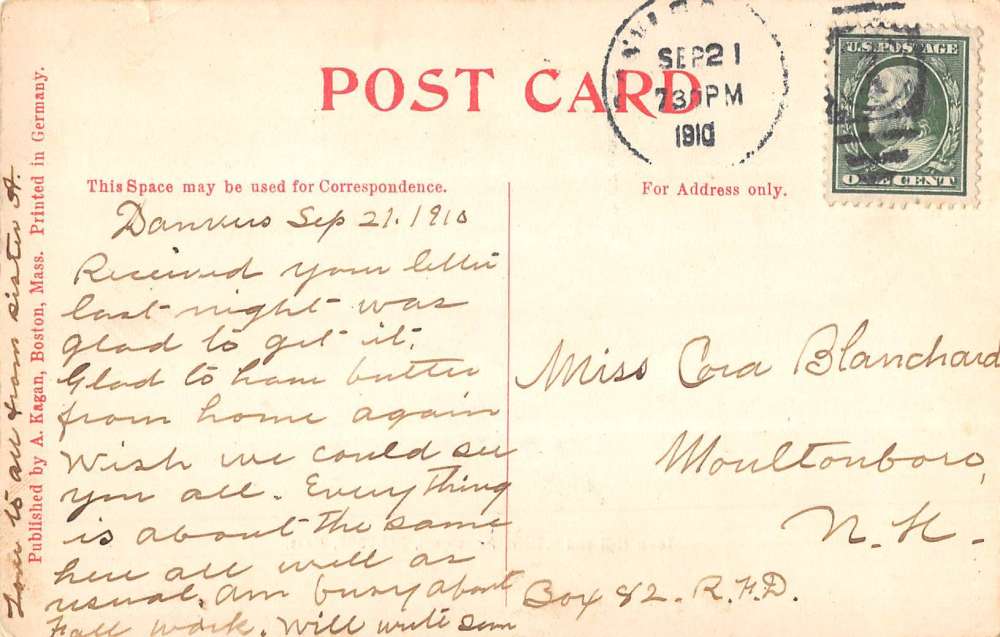 POST CARD
SEP 21
730 PM
1910
U.S. POSTAGE
ONE CENT
This Space may be used for Correspondence.
For Address only.
Danvers Sep 21. 1910
Received your letter
last night was
glad to get it.
Glad to have butter
from home again
Wish we could see
you all. Everything
is about the same
here all well as
usual. Am busy about
Fall work. Will write soon
Love to all from sister
Published by A. Kagan, Boston, Mass. Printed in Germany.
Miss Cora Blanchard
Moultonboro,
N. H.
Box 82. R.F.D.